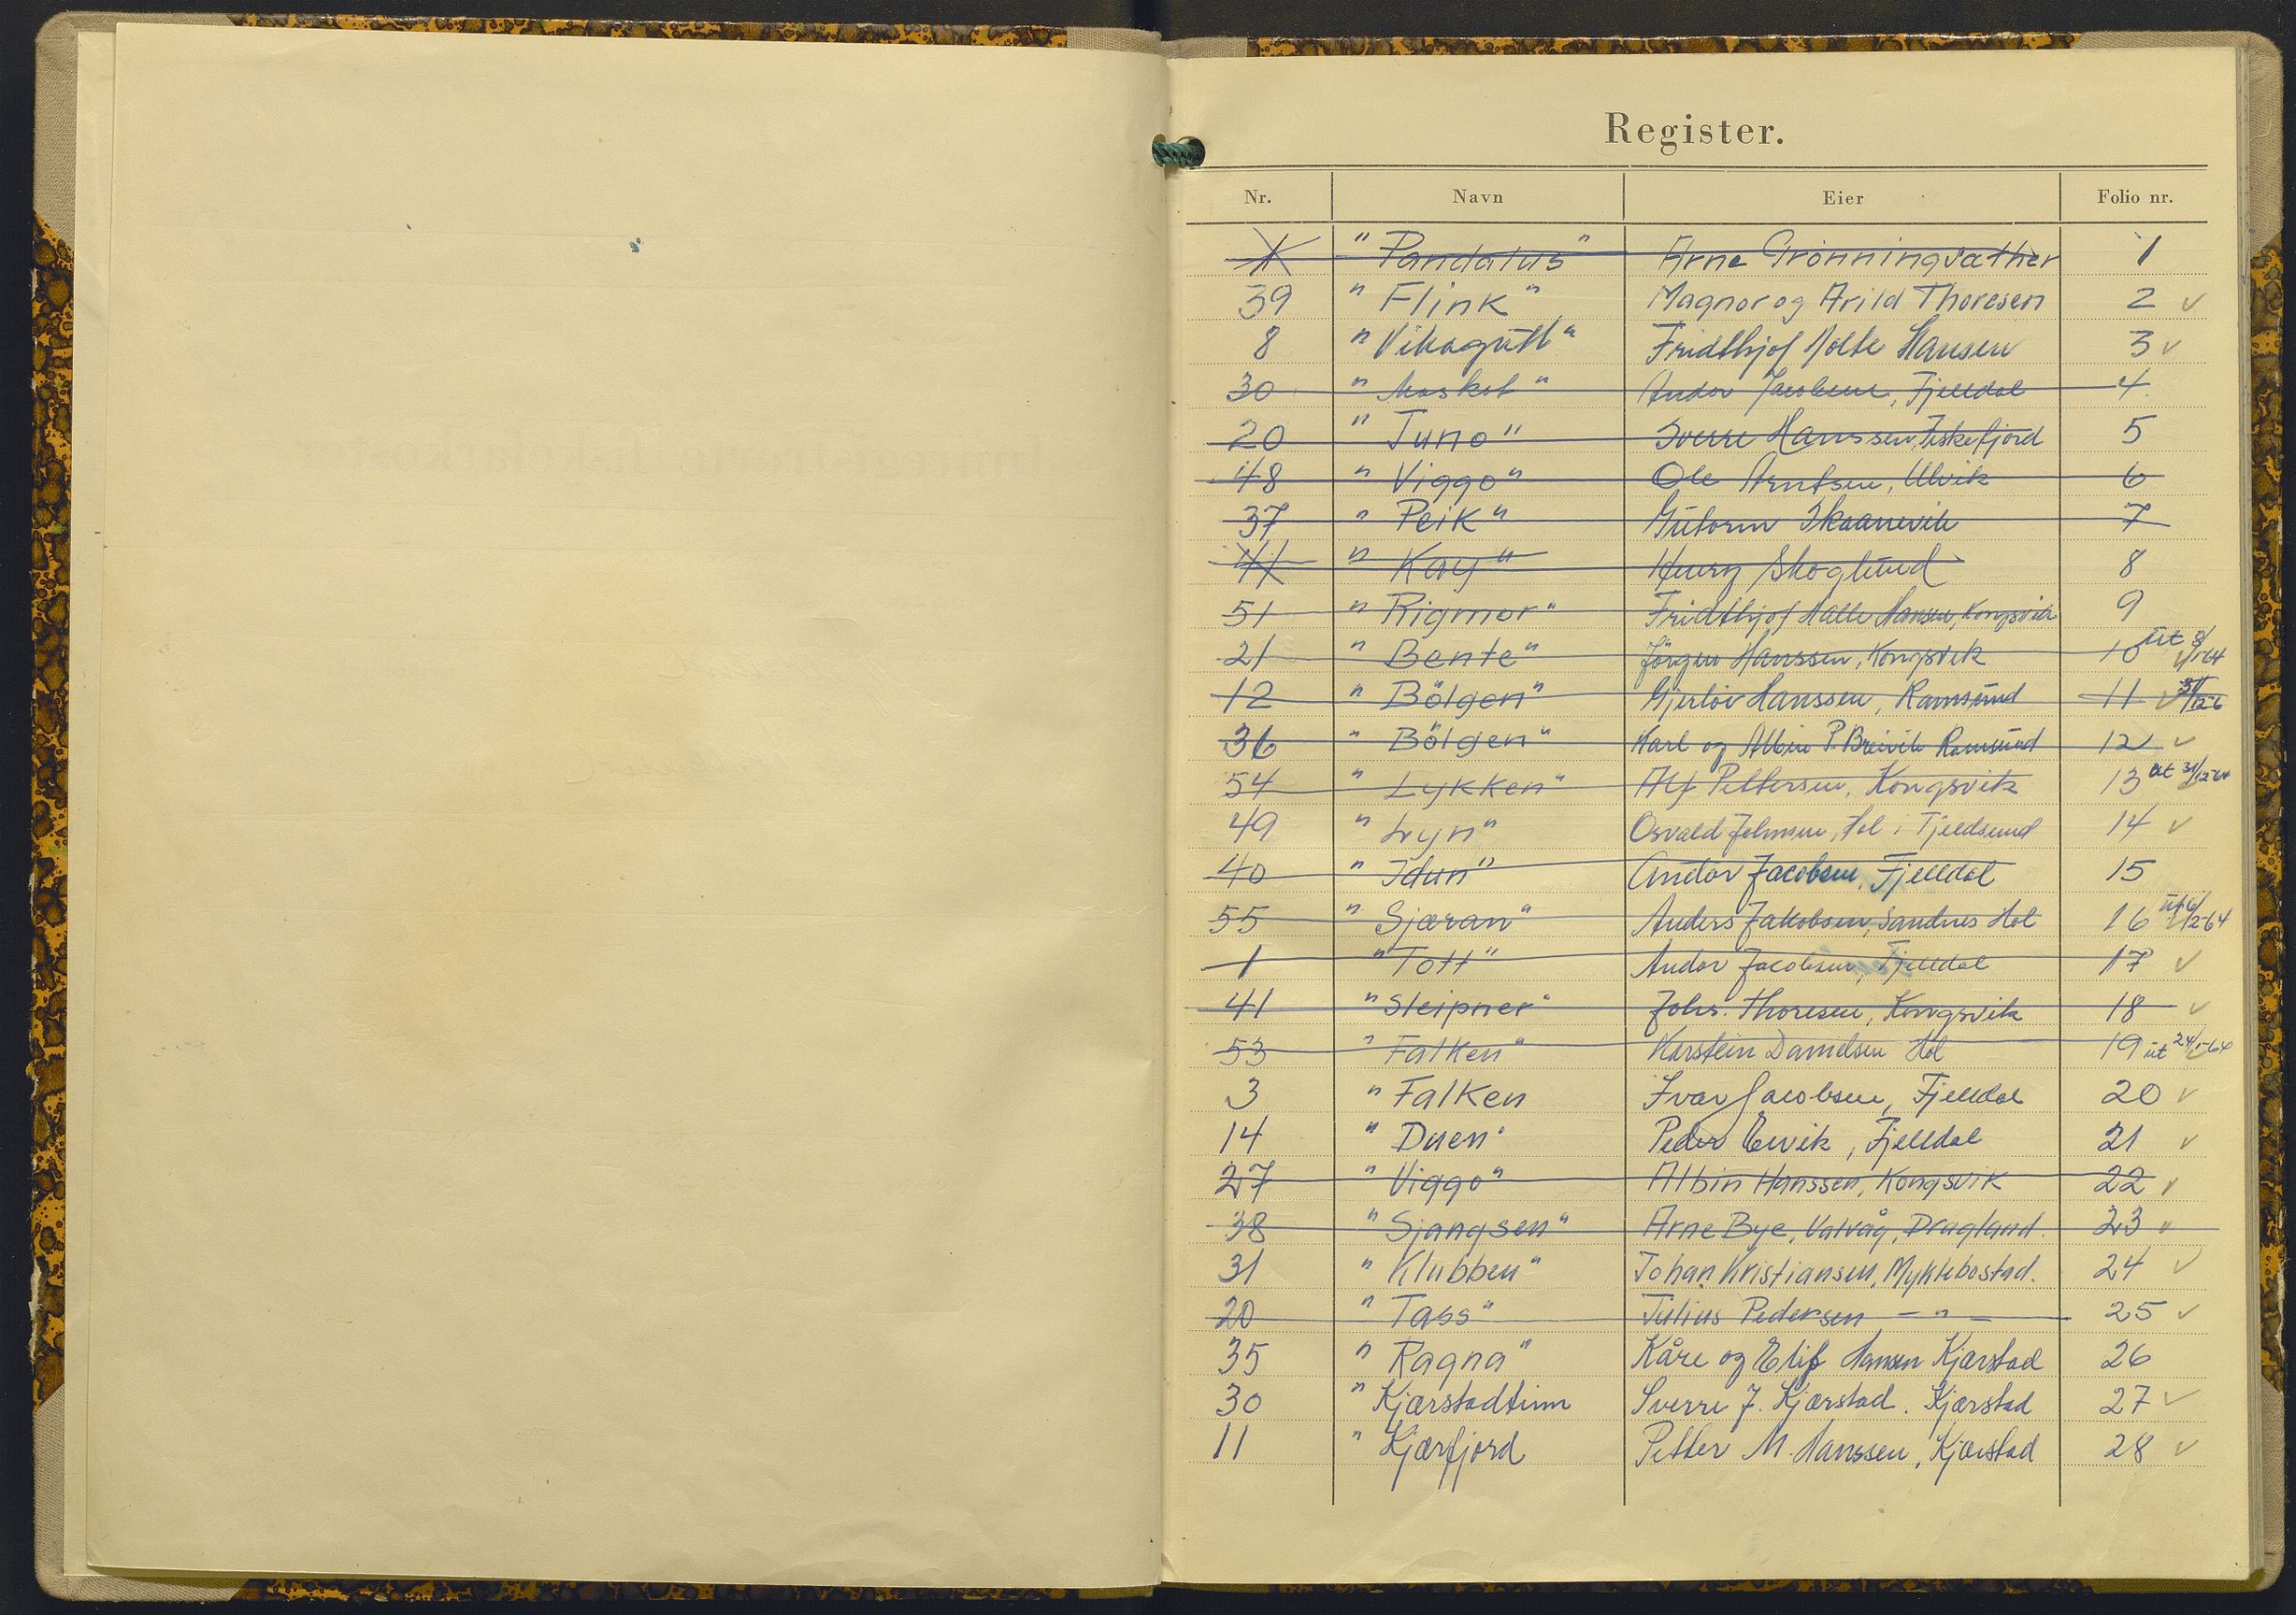 Register.
Nr. Navn Eier Folio nr.
1 "Pandalus" Arne Grönningsæther 1
39 "Flink" Magnor og Arild Thoresen 2 ✓
8 "Vikagutt" Fridthjof Holte Hansen 3 ✓
30 "Maskot" Andor Jacobsen, Fjelldal 4
20 "Juno" Sverre Hanssen, Fiskefjord 5
48 "Viggo" Ole Arntsen, Ulvik 6
37 "Peik" Gutorm Skaanevik 7
"Kay" Henry Skoglund 8
51 "Rigmor" Fridthjof Hansen, Kongsvik 9
21 "Bente" Jörgen Hanssen, Kongsvik 10 ut
12 "Bölgen" Gjerlöv Hanssen, Ramsund 11 ✓
36 "Bölgen" Karl og Albin P. Breivik Ramsund 12 ✓
54 "Lykken" Alf Pettersen, Kongsvik 13 ut 31/12-64
49 "Lyn" Osvald Johnsen, Hol i Tjeldsund 14 ✓
40 "Idun" Andor Jacobsen, Fjelldal 15
55 "Sjæran" Anders Jakobsen, Sandnes Hol 16 ut
1 "Tott" Andor Jacobsen, Fjelldal 17 ✓
41 "Sleipner" Johs. Thoresen, Kongsvik 18 ✓
53 "Falken" Karstein Danielsen Hol 19 ut
3 "Falken Ivar Jacobsen, Fjelldal 20 ✓
14 "Duen" Peder Elvik, Fjelldal 21 ✓
27 "Viggo" Albin Hanssen, Kongsvik 22 ✓
38 "Sjangsen" Arne Bye, Valvåg, Dragland. 23 ✓
31 "Klubben" Johan Kristiansen, Myklebostad. 24 ✓
20 "Tass" Julius Pedersen — " — 25 ✓
35 "Ragna" Kåre og Elif Hansen Kjærstad 26
30 "Kjærstadtinn Sverre J. Kjærstad. Kjærstad 27 ✓
11 "Kjærfjord Petter M. Hanssen, Kjærstad 28 ✓